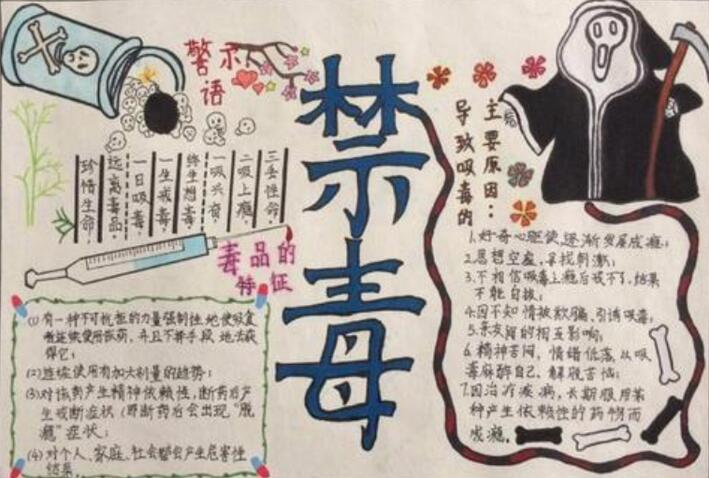 警示
语
珍惜生命，
远离毒品。
一日吸毒，
一生戒毒，
终生想毒。
一吸兴奋，
二吸上瘾，
三丢性命。
禁毒
毒品的
特征
(1)有一种不可抗拒的力量强制性地使吸食
者连续使用该药，并且不择手段地去获
得它；
(2)连续使用有加大剂量的趋势；
(3)对该药产生精神依赖性，断药后产
生戒断症状(即断药后会出现“脱
瘾”症状；
(4)对个人、家庭、社会都会产生危害性
结果。
导致吸毒的
主要原因：
1.好奇心驱使，逐渐发展成瘾；
2.思想空虚，寻找刺激；
3.不相信吸毒上瘾后戒不了，结果
不能自拔；
4.因不知情被欺骗，引诱吸毒；
5.亲友间的相互影响；
6.精神苦闷，情绪低落，以吸
毒麻醉自己，解脱苦恼；
7.因治疗疾病，长期服用某
种产生依赖性的药物而
成瘾。